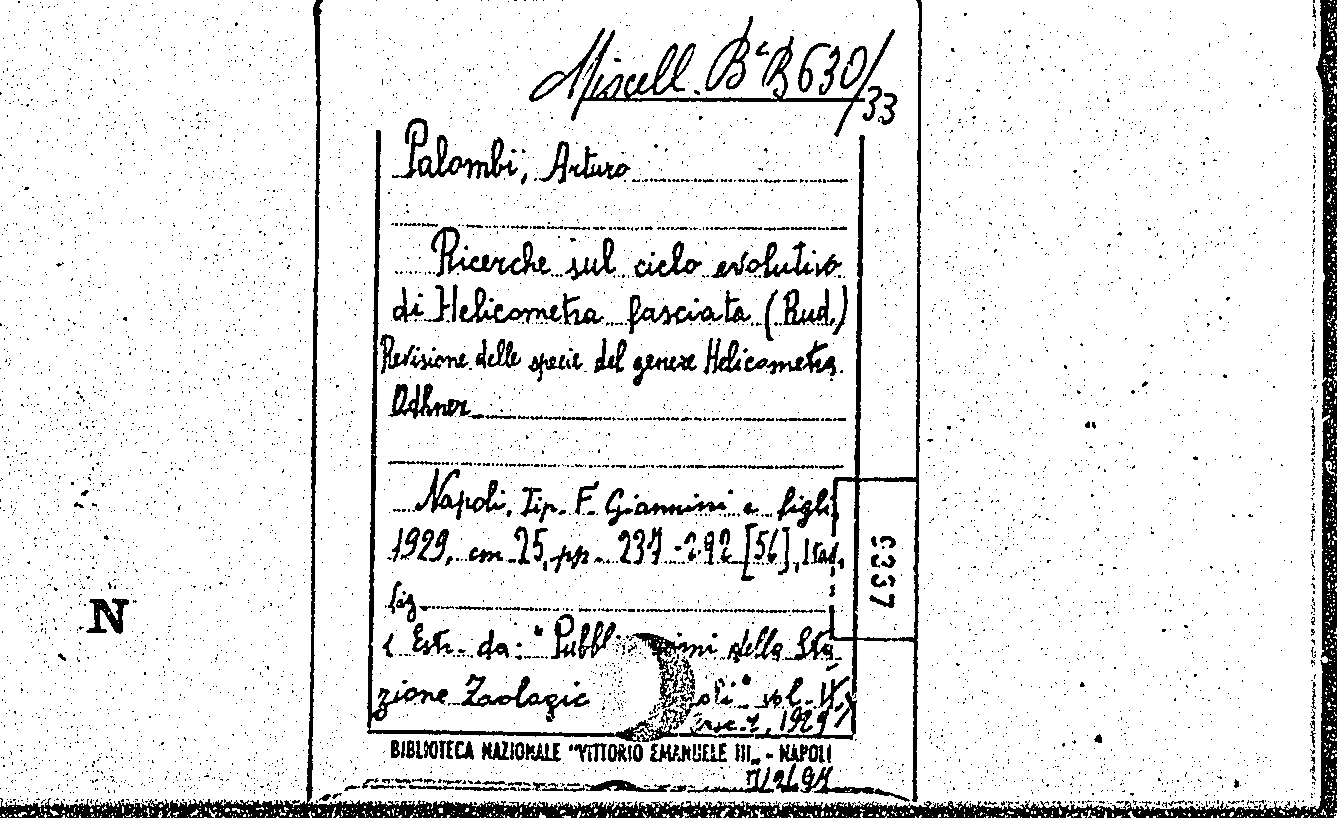 Miscell. B<sup>a</sup> B 630/33
Palombi, Arturo
Ricerche sul ciclo evolutivo
di Helicometra fasciata (Rud.)
Revisione delle specie del genere Helicometra
Odhner
Napoli, Tip. F. Giannini e figli,
1929, cm. 25, pp. 237-292 [56],
fig.
Estr. da: "Pubbl ioni della Sta
zione Zoologic oli" vol. IX
fasc. 2, 1929
6337
N
BIBLIOTECA NAZIONALE "VITTORIO EMANUELE III„ - NAPOLI